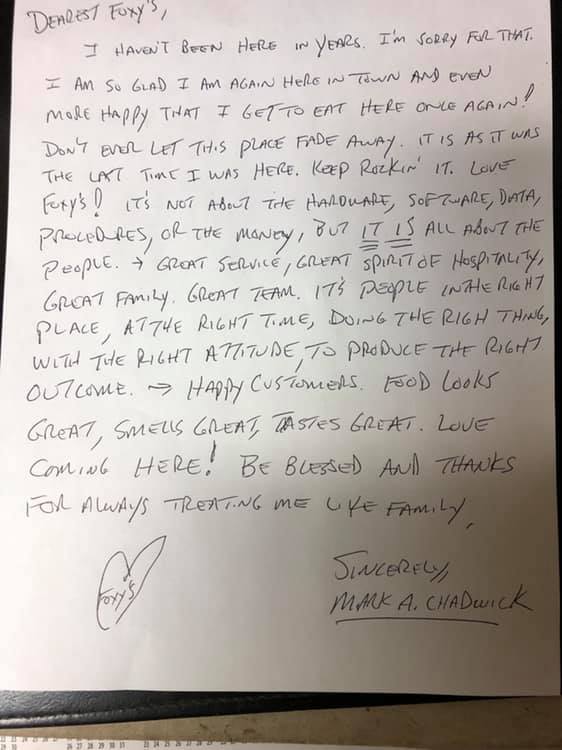 DEAREST FOXY'S,
I HAVEN'T BEEN HERE IN YEARS. I'M SORRY FOR THAT.
I AM SO GLAD I AM AGAIN HERE IN TOWN AND EVEN
MORE HAPPY THAT I GET TO EAT HERE ONCE AGAIN!
DON'T EVER LET THIS PLACE FADE AWAY. IT IS AS IT WAS
THE LAST TIME I WAS HERE. KEEP ROCKIN' IT. LOVE
FOXY'S! IT'S NOT ABOUT THE HARDWARE, SOFTWARE, DATA,
PROCEDURES, OR THE MONEY, BUT IT IS ALL ABOUT THE
PEOPLE. → GREAT SERVICE, GREAT SPIRIT OF HOSPITALITY,
GREAT FAMILY. GREAT TEAM. IT'S PEOPLE IN THE RIGHT
PLACE, AT THE RIGHT TIME, DOING THE RIGH THING,
WITH THE RIGHT ATTITUDE, TO PRODUCE THE RIGHT
OUTCOME. → HAPPY CUSTOMERS. FOOD LOOKS
GREAT, SMELLS GREAT, TASTES GREAT. LOVE
COMING HERE! BE BLESSED AND THANKS
FOR ALWAYS TREATING ME LIKE FAMILY,
FOXY'S
SINCERELY,
MARK A. CHADWICK
26 27 28 29 30 31 23 24 25 26 27 28 29